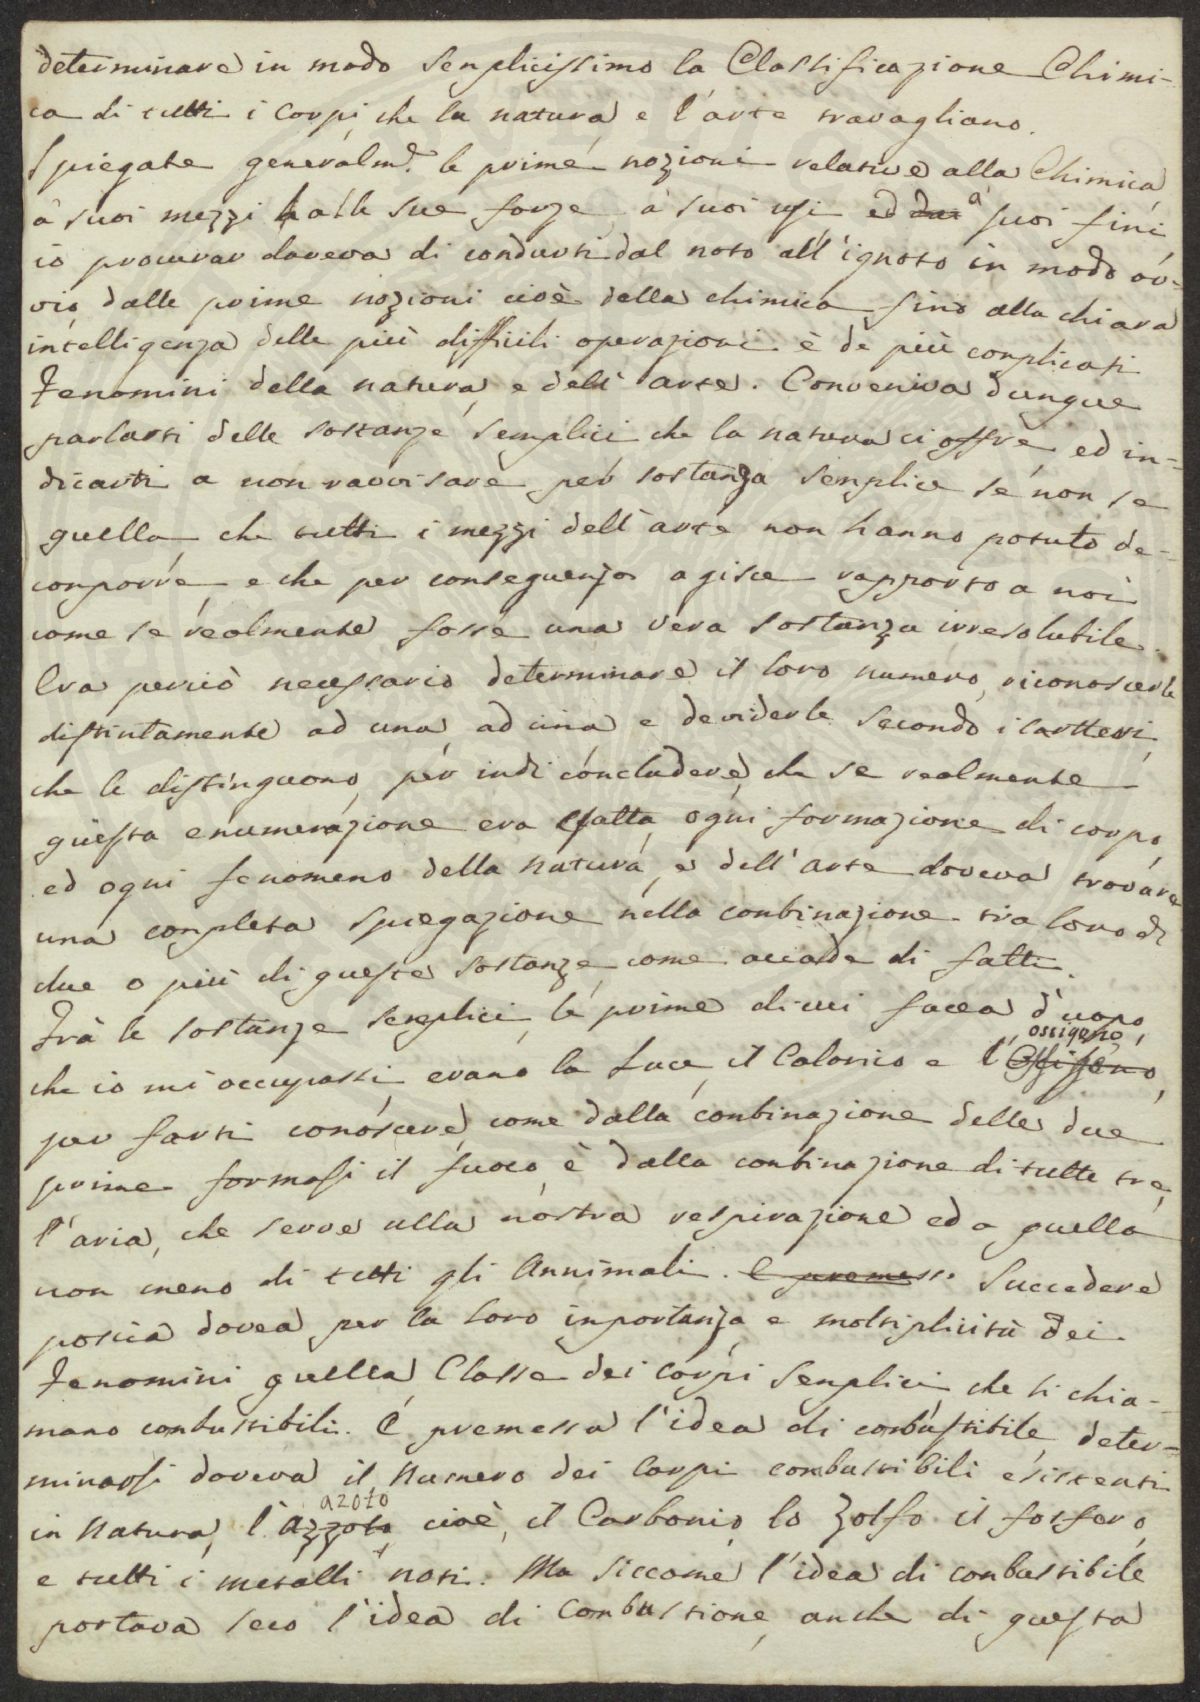 determinare in modo senplicissimo la Classificazione Chimi-
ca di tutti i Corpi, che la natura, e l'arte travagliano.
Spiegate generalm.e le prime nozioni relative alla Chimica,
a suoi mezzi alle sue forze, a suoi usi, ed dai a suoi fini,
io procurar doveva di condursi dal noto all'ignoto in modo ov-
vio, dalle prime nozioni cioè della chimica fino alla chiara
intelligenza delle più difficili operazioni è de più conplicati
Fenomini della natura, e dell'arte. Conveniva dunque
parlarti delle sostanze semplici che la natura ci offre, ed in-
dicarti a non ravvisare per sostanza senplice se non se
quella, che tutti i mezzi dell'arte non hanno potuto de-
conporre, e che per conseguenza agisce rapporto a noi
come se realmente fosse una vera sostanza irresolubile.
Era perciò necessario determinare il loro numero, riconoscerle
distintamente ad una, ad una e dividerle secondo i caratteri,
che le distinguono, per indi concludere, che se realmente
questa enumerazione era esatta, ogni formazione di corpo,
ed ogni fenomeno della natura, e dell'arte doveva trovare
una conpleta spiegazione nella conbinazione tra loro di
due o più di queste sostanze, come accade di fatti.
Frà le sostanze senplici, le prime di cui facea d'uopo,
ossigeno,
che io mi occupassi, erano la Luce, il Calorico e l'Ossigeno,
per farti conoscere, come dalla conbinazione delle due
prime formasi il fuoco, è dalla conbinazione di tutte tre,
l'aria, che serve alla nostra respirazione ed a quella
non meno di tutti gli Annimali. E premess. Succedere
poscia dovea per la loro inportanza, e moltiplicità dei
Fenomini quella Classe dei corpi senplici, che si chia-
mano conbustibili. E premessa l'idea di conbustibile, deter-
minarsi doveva il Numero dei Corpi conbustibili esistenti
azoto
in Natura, l'azzoto, cioè, il Carbonio, lo Zolfo il fosforo,
e tutti i metalli noti. Ma siccome l'idea di conbustibile
portava seco l'idea di Conbustione, anche di questa